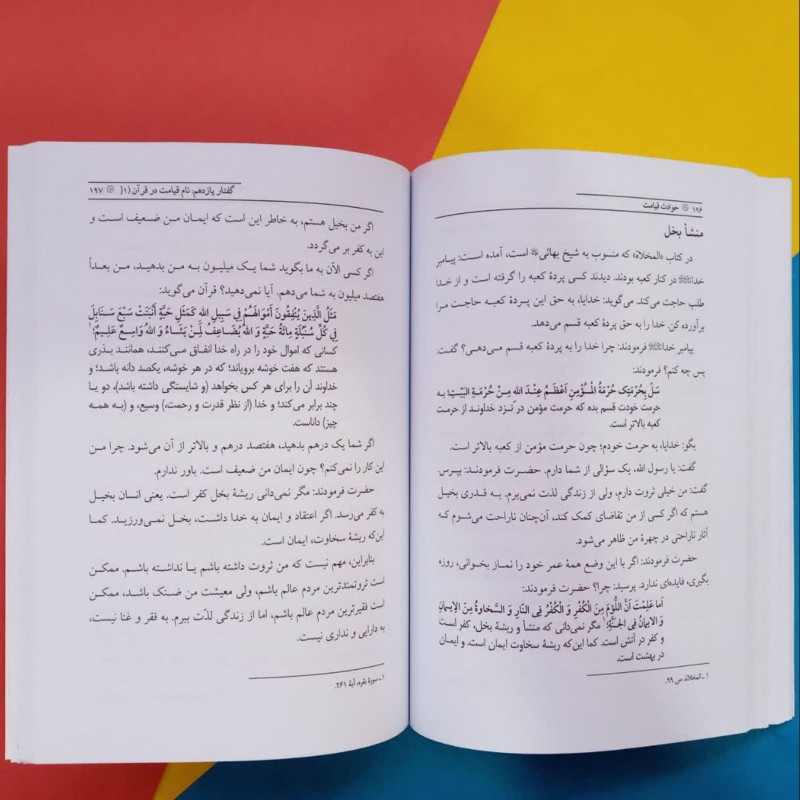 ۱۹۶ حوادث قیامت
منشأ بخل
در کتاب «المخلاة» که منسوب به شیخ بهائی است، آمده است: پیامبر
خدا در کنار کعبه بودند. دیدند کسی پردهٔ کعبه را گرفته است و از خدا
طلب حاجت می کند. می‌گوید: خدایا، به حق این پردهٔ کعبه حاجت مرا
برآورده کن. خدا را به حق پردهٔ کعبه قسم می‌دهد.
پیامبر خدا فرمودند: چرا خدا را به پردهٔ کعبه قسم می‌دهی؟ گفت:
پس چه کنم؟ فرمودند:
سَلْ بِحُرْمَتِک حُرْمَةُ الْمُؤْمِنِ أَعْظَمُ عِنْدَ الله مِنْ حُرْمَةِ الْبَیْتِ؛۱ به
حرمت خودت قسم بده که حرمت مؤمن در نزد خداوند از حرمت
کعبه بالاتر است.
بگو: خدایا، به حرمت خودم؛ چون حرمت مؤمن از کعبه بالاتر است.
گفت: یا رسول الله، یک سؤالی از شما دارم. حضرت فرمودند: بپرس.
گفت: من خیلی ثروت دارم، ولی از زندگی لذت نمی‌برم. به قدری بخیل
هستم که اگر کسی از من تقاضای کمک کند، آن‌چنان ناراحت می‌شوم که
آثار ناراحتی در چهرهٔ من ظاهر می‌شود.
حضرت فرمودند: اگر با این وضع همهٔ عمر خود را نماز بخوانی، روزه
بگیری، فایده‌ای ندارد. پرسید: چرا؟ حضرت فرمودند:
أَما عَلِمْتَ أَنَّ اللُّؤْمَ مِنَ الْکُفْرِ وَ الْکُفْرَ فِی النَّارِ وَ السَّخَاوَةَ مِنَ الْإِیمَانِ
وَ الْاِیمَانَ فِی الْجَنَّةِ؛۱ مگر نمی‌دانی که منشأ و ریشهٔ بخل، کفر است
و کفر در آتش است. کما این‌که ریشهٔ سخاوت ایمان است. و ایمان
در بهشت است.
۱ـ المخلاة، ص ۹۹.
گفتار یازدهم: نام قیامت در قرآن (۱) ۱۹۷
اگر من بخیل هستم، به خاطر این است که ایمان من ضعیف است و
این به کفر بر می‌گردد.
اگر کسی الآن به ما بگوید شما یک میلیون به من بدهید، من بعداً
هفتصد میلیون به شما می‌دهم. آیا نمی‌دهید؟ قرآن می‌گوید:
مَثَلُ الَّذِینَ یُنْفِقُونَ أَمْوَالَهُمْ فِي سَبِیلِ الله کَمَثَلِ حَبَّةٍ أَنْبَتَتْ سَبْعَ سَنَابِلَ
فِي کُلِّ سُنْبُلَةٍ مِائَةُ حَبَّةٍ وَ اللهُ یُضَاعِفُ لِمَنْ یَشَاءُ وَ اللهُ وَاسِعٌ عَلِیمٌ؛۱
کسانی که اموال خود را در راه خدا انفاق می‌کنند، همانند بذری
هستند که هفت خوشه برویاند؛ که در هر خوشه، یکصد دانه باشد؛ و
خداوند آن را برای هر کس بخواهد (و شایستگی داشته باشد)، دو یا
چند برابر می‌کند؛ و خدا (از نظر قدرت و رحمت،) وسیع، و (به همه
چیز) داناست.
اگر شما یک درهم بدهید، هفتصد درهم و بالاتر از آن می‌شود. چرا من
این کار را نمی‌کنم؟ چون ایمان من ضعیف است. باور ندارم.
حضرت فرمودند: مگر نمی‌دانی ریشهٔ بخل کفر است. یعنی انسان بخیل
به کفر می‌رسد. اگر اعتقاد و ایمان به خدا داشت، بخل نمی‌ورزید. کما
این‌که ریشهٔ سخاوت، ایمان است.
بنابراین، مهم نیست که من ثروت داشته باشم یا نداشته باشم. ممکن
است ثروتمندترین مردم عالم باشم، ولی معیشت من ضنک باشد، ممکن
است فقیرترین مردم عالم باشم، اما از زندگی لذّت ببرم. به فقر و غنا نیست،
به دارایی و نداری نیست.
۱ـ سورهٔ بقره، آیهٔ ۲۶۱.